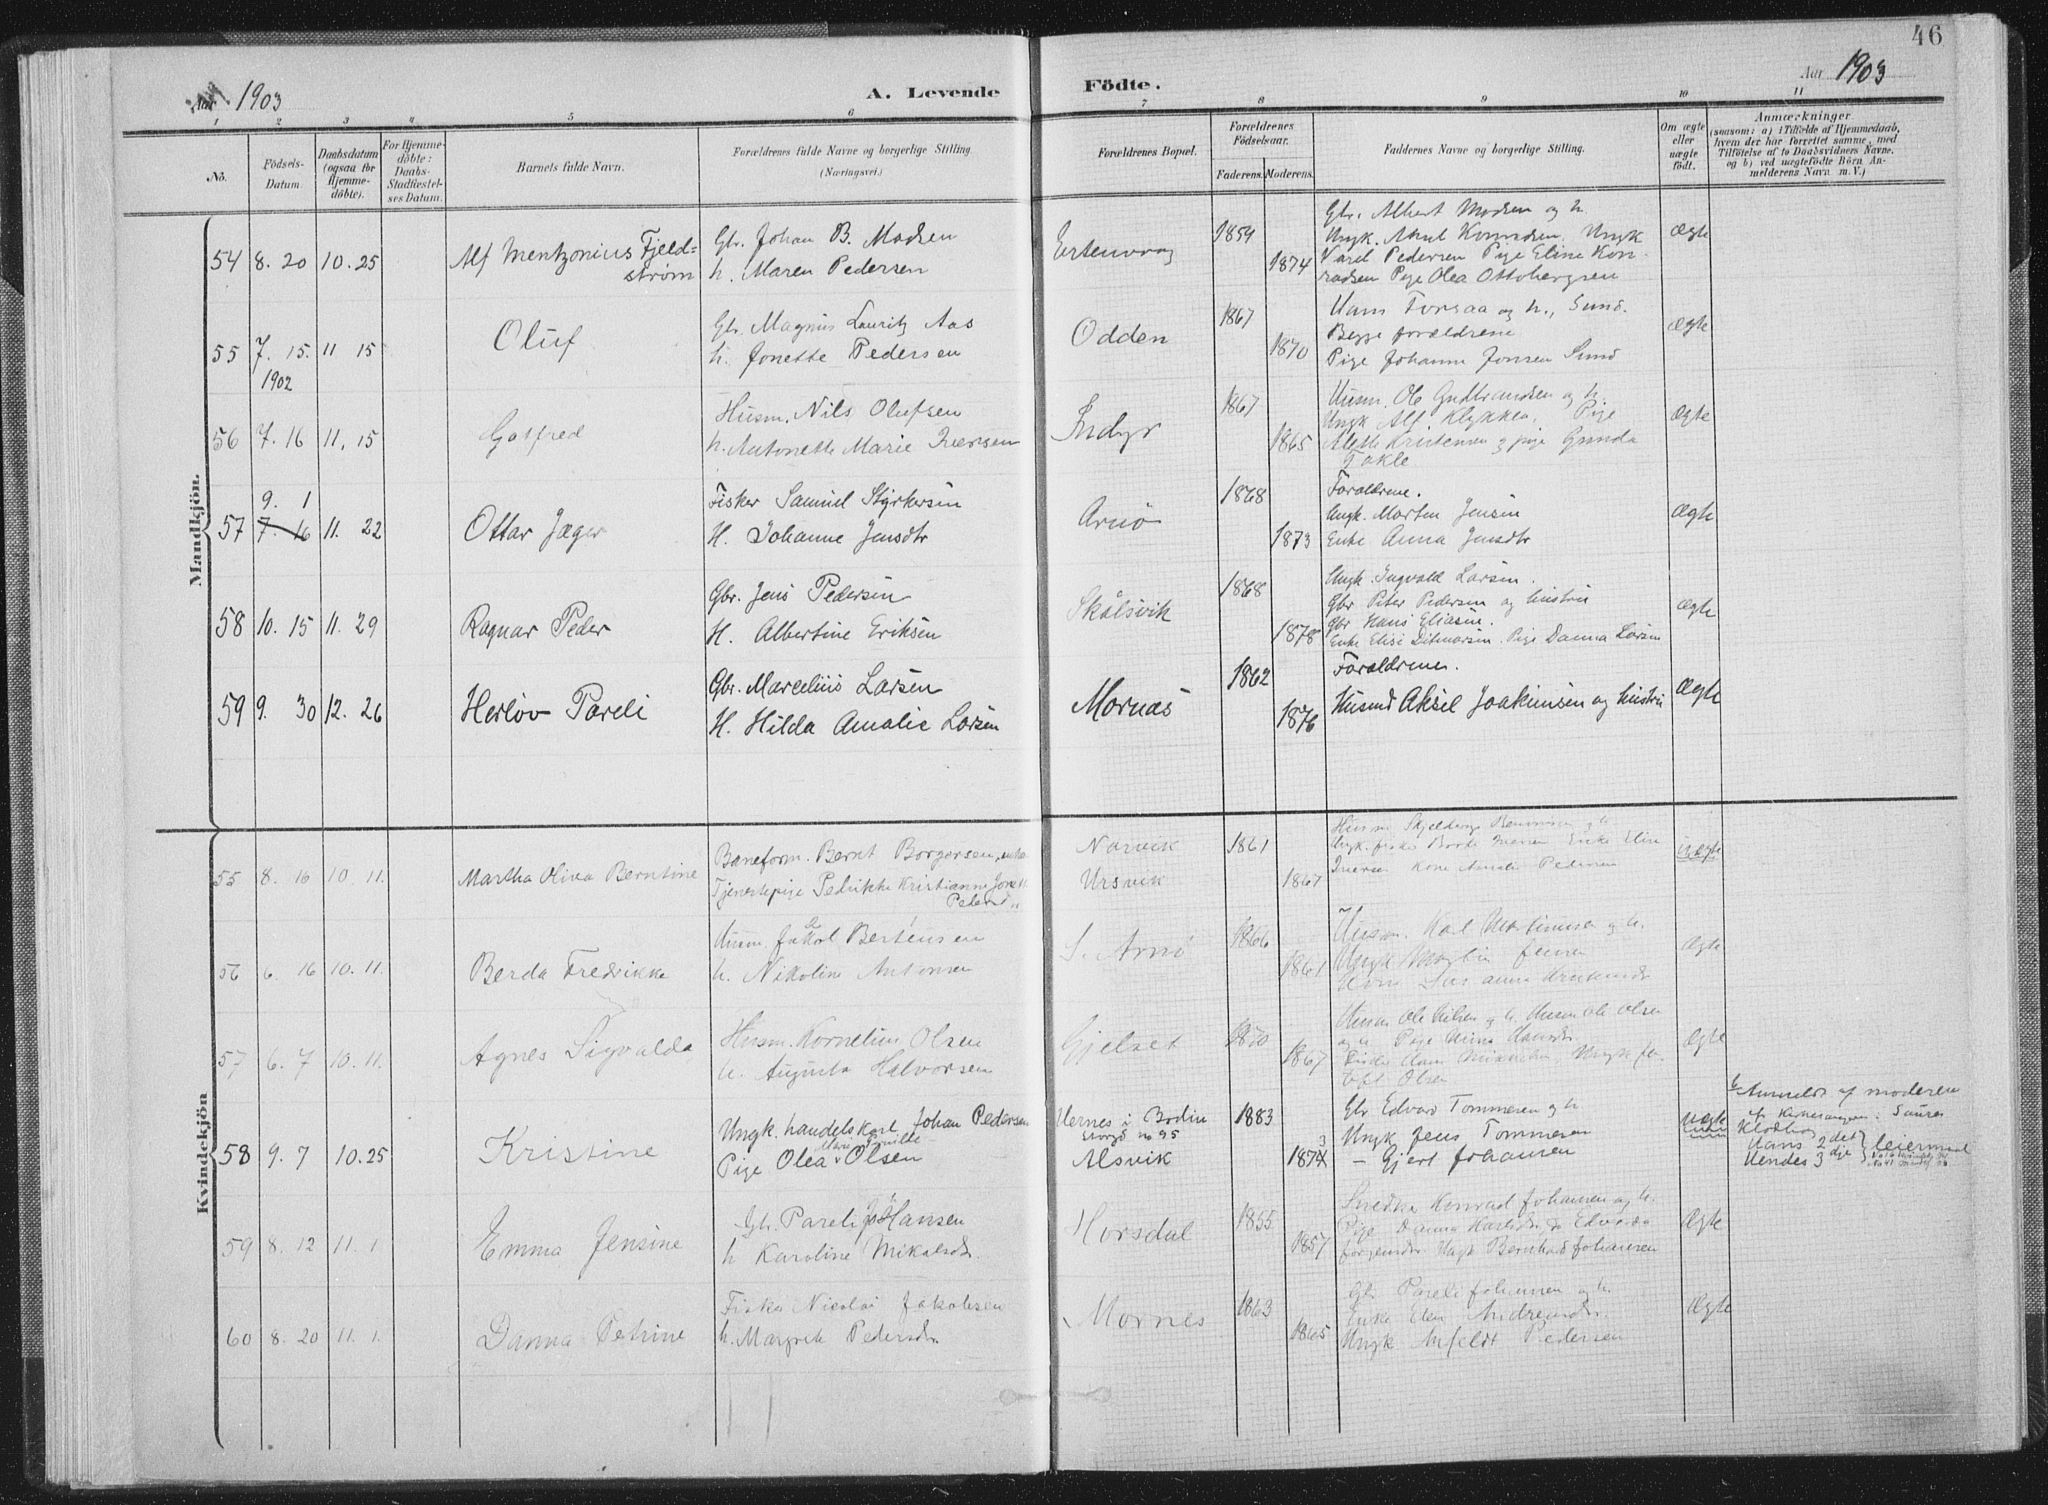 46
Aar 1903
A. Levende
Födte.
Aar 1903
1 2 3 4 5 6 7 8 9 10 11
No.
Födsels-Datum.
Daabsdatum (ogsaa for Hjemmedöbte).
For Hjemmedöbte: Daabs-Stadfæstelses Datum.
Barnets fulde Navn.
Forældrenes fulde Navne og borgerlige Stilling. (Næringsvei.)
Forældrenes Bopæl.
Forældrenes Födselsaar.
Faderens. Moderens.
Faddernes Navne og borgerlige Stilling.
Om ægte eller uægte födt.
Anmærkninger
(saasom: a) i Tilfælde af Hjemmedaab, hvem der har forrettet samme, med Tilföielse af to Daabsvidners Navne, og b) ved uægtefödte Börn Anmelderens Navn m. V.)
Mandkjön.
54 8. 20 10. 25 Alf Mentzonius Fjeld=
ström
Gbr. Johan B. Madsen
h. Maren Pedersen
1859
1874
Gbr. Albert Madsen og h.
Ungk. Konradsen, Ungk
Pedersen Pige Eline Kon-
radsen Pige Olea Ottobergsen
Ægte
55 7. 15. 11 15 Oluf
1902
Gbr. Magnus Lauritz Aas
h. Jonette Pedersen
Odden
1867
1870
Hans Torsaa og h., Sund.
Begge forældrene
Pige Johanne Jonsen Sund
Ægte
56 7. 16 11. 15 Gotfred
Husm. Nils Olufsen
h. Antonette Marie Iversen
Indyr
1867
1865
Husm. Ole Gudbrandsen og h.
Ungk Alf Klykken, Pige
Kristensen og pige Gunda
Fakle
Ægte
57 9. 1
7. 16 11. 22 Ottar Jæger
Fisker Samuel Styrkersen
H. Johanne Jensdtr
Arnö
1868
1873
Forældrene.
Ungk. Morten Jensen
Enke Anna Jensdtr
Ægte
58 10. 15 11. 29 Ragnar Peder
Gbr. Jens Pedersen
H. Albertine Eriksen
Skålsvik
1868
1878
Ungk. Ingvald Larsen.
Gbr Peter Pedersen og hustru
Gbr Hans Eliasen.
Enke Elise Ditmarsen. Pige Danna Larsen
Ægte
59 9. 30 12. 26 Herlöv Pareli
Gbr. Marcelius Larsen
H. Hilda Amalie Larsen
Mornäs
1862
1876
Forældrene.
Husmd Aksel Joakimsen og hustru
Ægte
Kvindekjön
55 8. 16 10. 11. Martha Oliva Berntine
Baneform. Bernt Borgersen,
Tjenestepige Pedrikke Kristianne
Narvik
Ursvik
1861
1867
Uægte
56 6. 16 10. 11. Berda Fredrikke
Husm. Jakol Bertensen
h. Nikoline Antonsen
S. Arnö
1866
1861
Ægte
57 6. 7 10. 11. Agnes Sigvalda
Husm. Kornelius Olsen
h. Augusta Halvorsen
Gjelset
1870
1867
Husm Ole Nilsen og h. Husm Ole Olsen
og h Pige Anna Hansdtr.
Olsen
Ægte
58 9. 7 10. 25 Kristine
Ungk. handelskarl Johan Pedersen
Pige Olea Olsen
Hernes i Bodin
Alsvik
1883
3
1874
Gbr Edvard Tommeren og h
Ungk Jens Tommeren
— Gjert Johansen
Uægte
Anmeldt af moderen
Hans 2det
Hendes 3dje
leiermaal
59 8. 12 11. 1 Emma Jensine
Gbr. Pareli Hansen
h Karoline Mikalsdr.
Horsdal
1855
1857
Snedker Konrad Johansen og h.
Pige Danna Karlsdr. Edvarda
Jörgensdr. Ungk Bernhard Johansen
Ægte
60 8. 20 11. 1. Danna Petrine
Fisker Nicolai Jakobsen
h. Margrete Pedersdr.
Mornes
1863
1865
Gbr Pareli Johansen og h.
Enke Elen Andreasdr.
Ungk Anfeldt Pedersen
Ægte